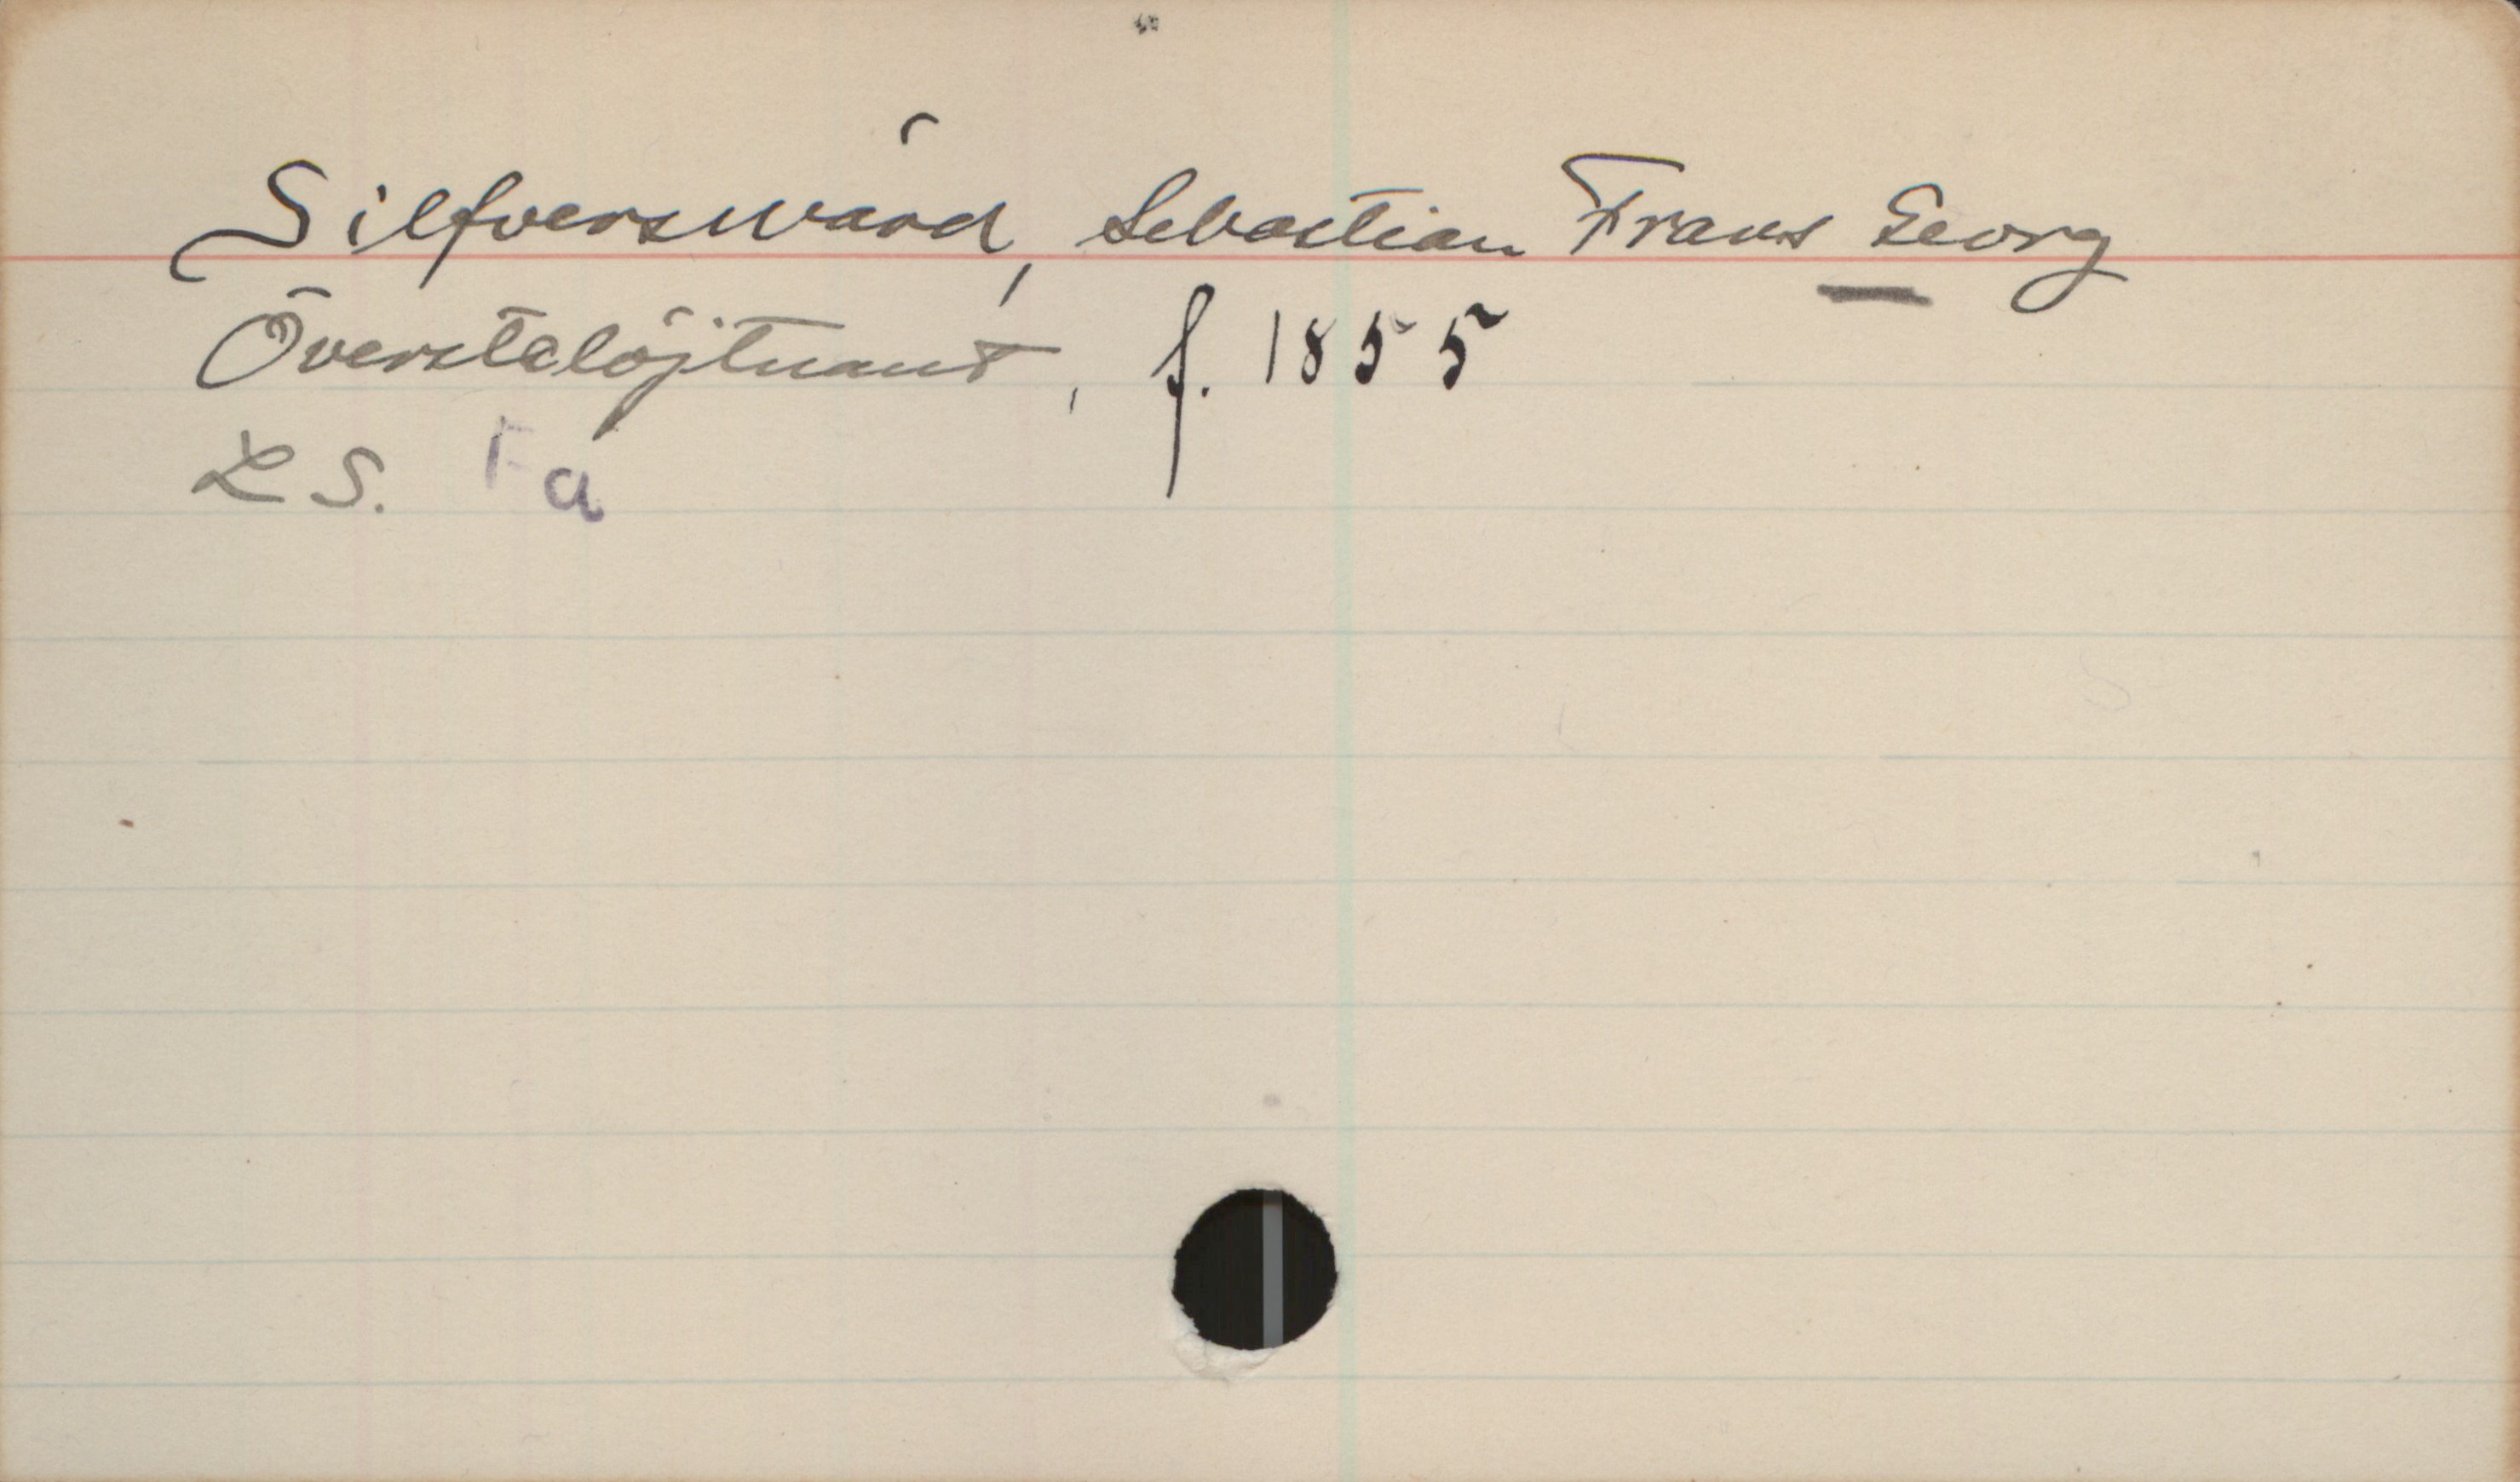 Silfverswärd, Sebastian Frans Georg
Överstelöjtnant, f. 1855
L S. Fa